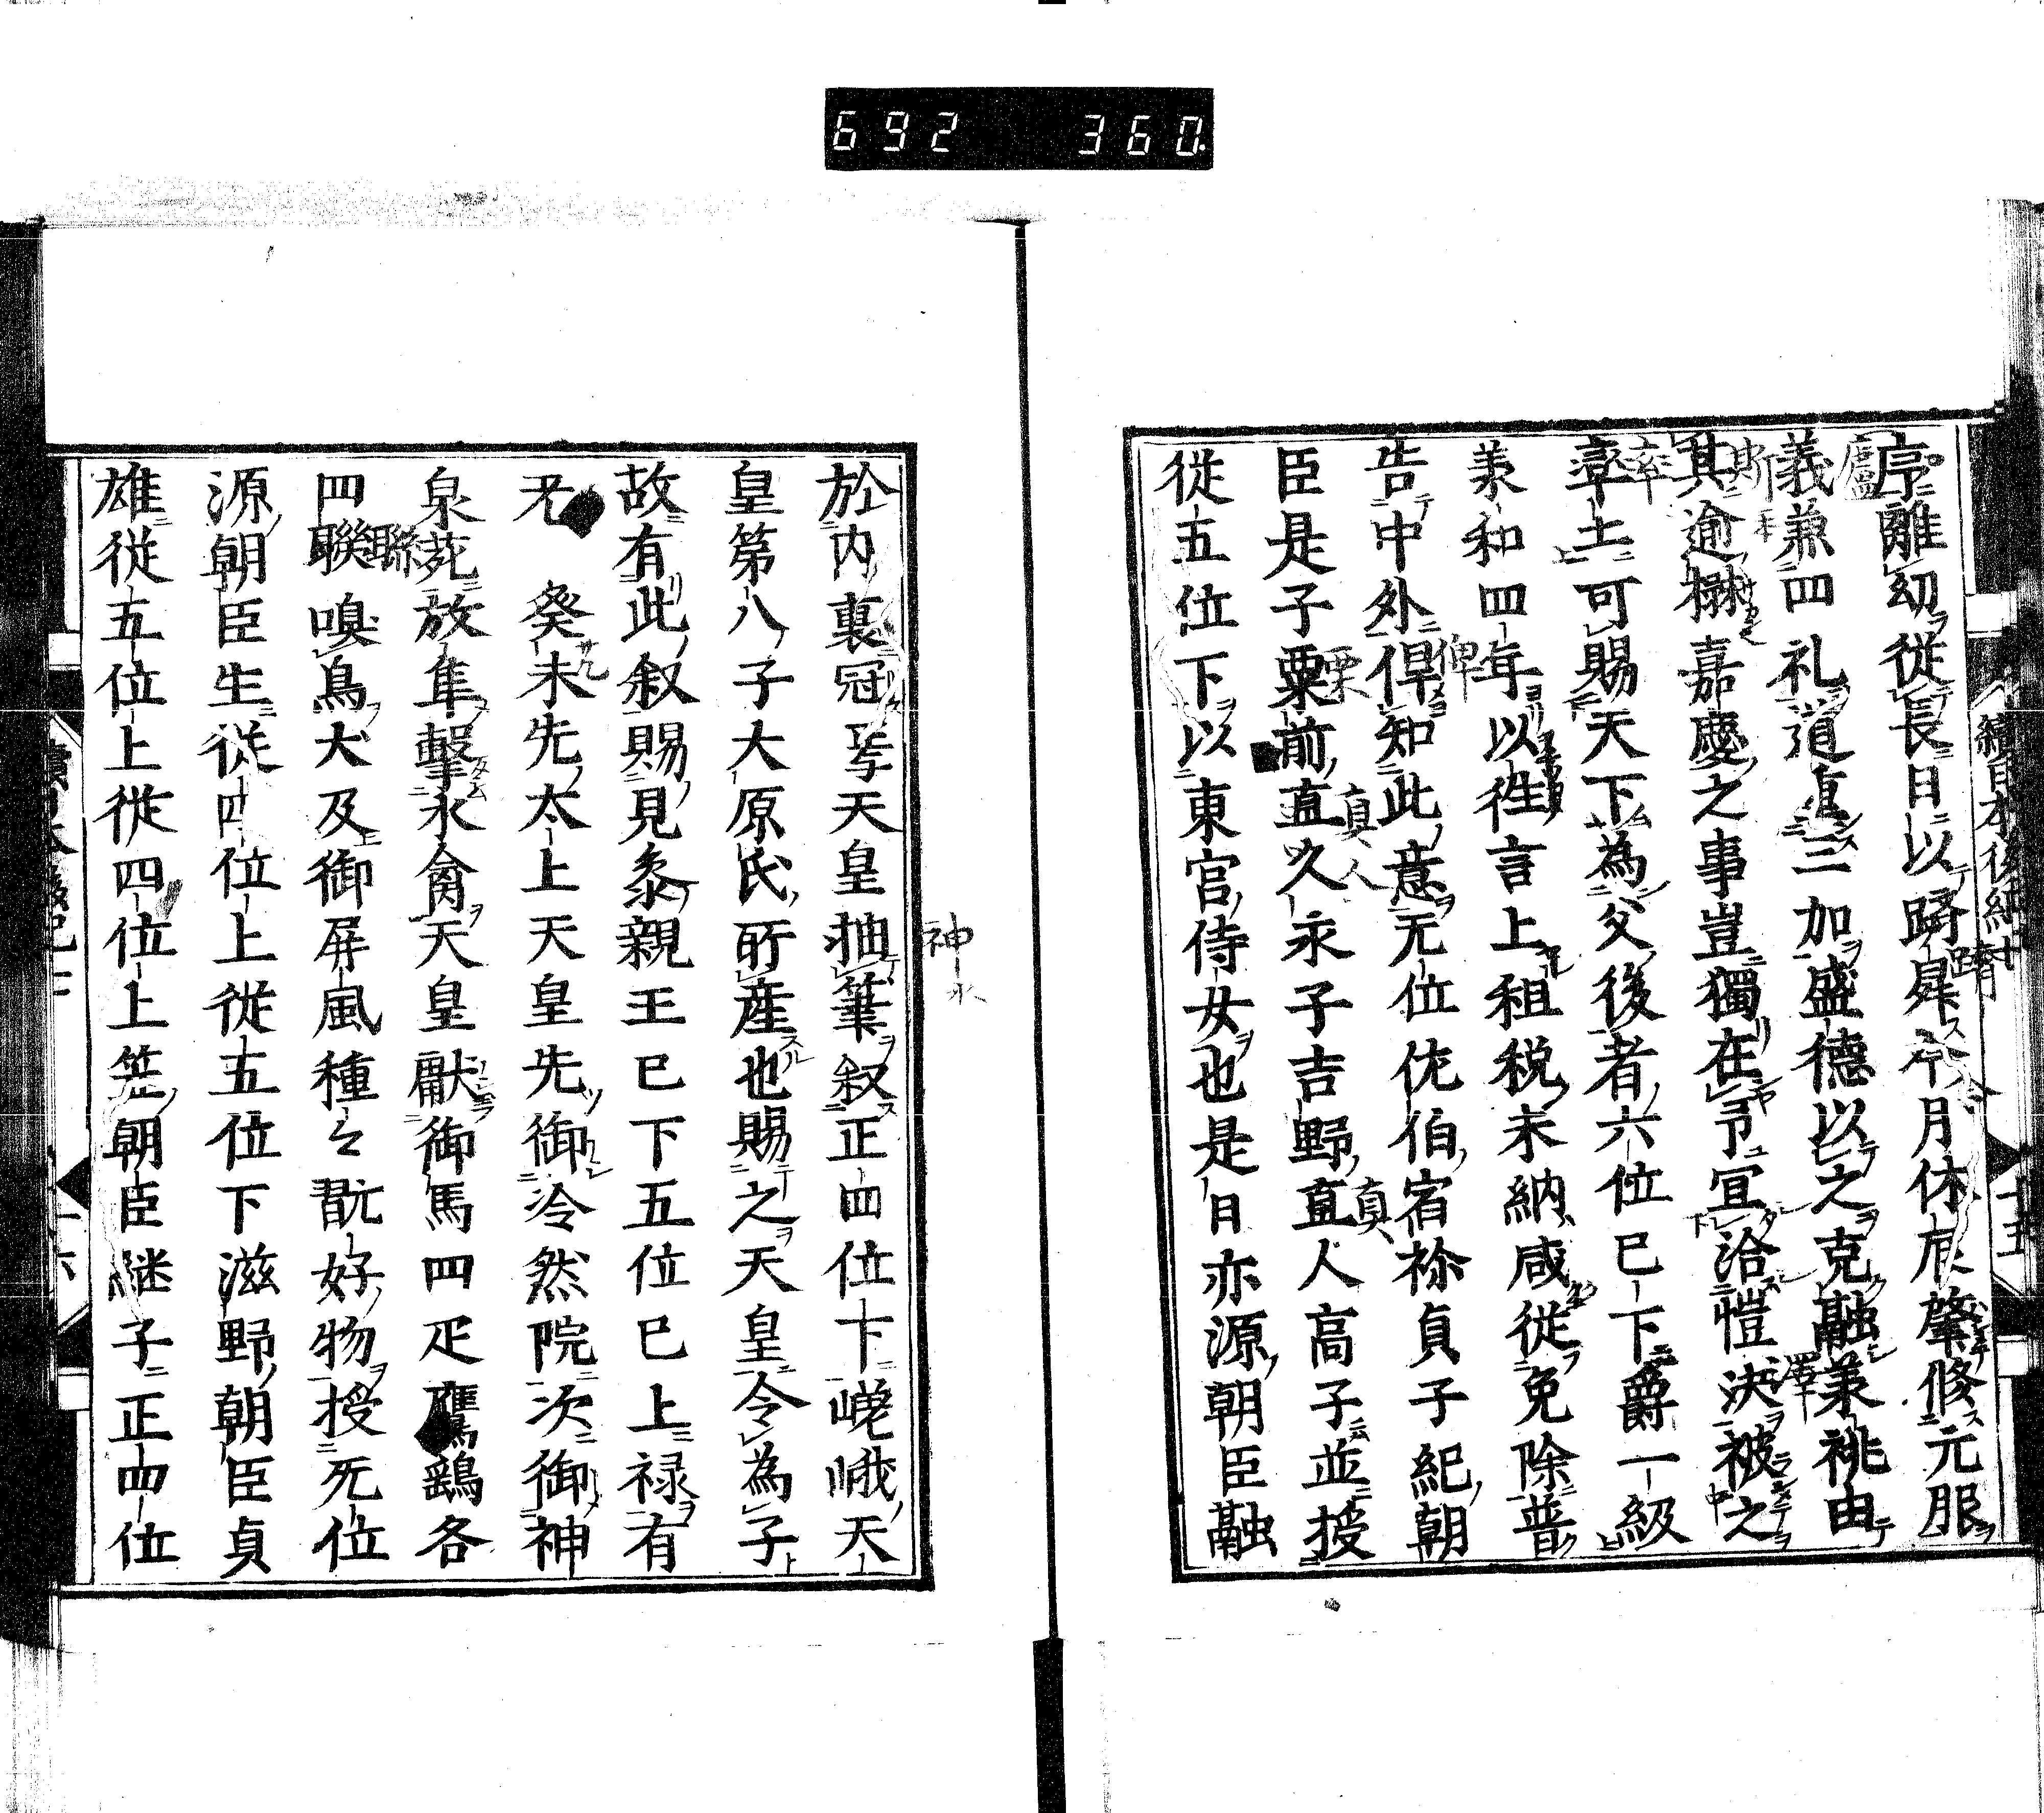 692 360
序離幼從長日以躋曻令月休辰肇修元服
義兼四礼道亘三加盛德以之克融羕祧由
其逾楙嘉慶之事豈獨在予冝洽愷决被之
率土可賜天下為父後者六位已下爵一級
羕和四年以徃言上租税未納咸從免除普
告中外俾知此意无位佐伯宿祢貞子紀朝
臣是子粟前直久永子吉野直人高子並授
從五位下以東宮侍女也是日亦源朝臣融
於内裏冠焉天皇抽筆叙正四位下嵯峨天
皇第八子大原氏所産也賜之天皇令為子
故有此叙賜見参親王已下五位已上禄有
差 癸未先太上天皇先御冷然院次御神
泉苑放隼擊水禽天皇獻御馬四疋鷹鷂各
四聯嗅鳥犬及御屏風種々翫好物授无位
源朝臣生從四位上從五位下滋野朝臣貞
雄従五位上從四位上笠朝臣継子正四位
神